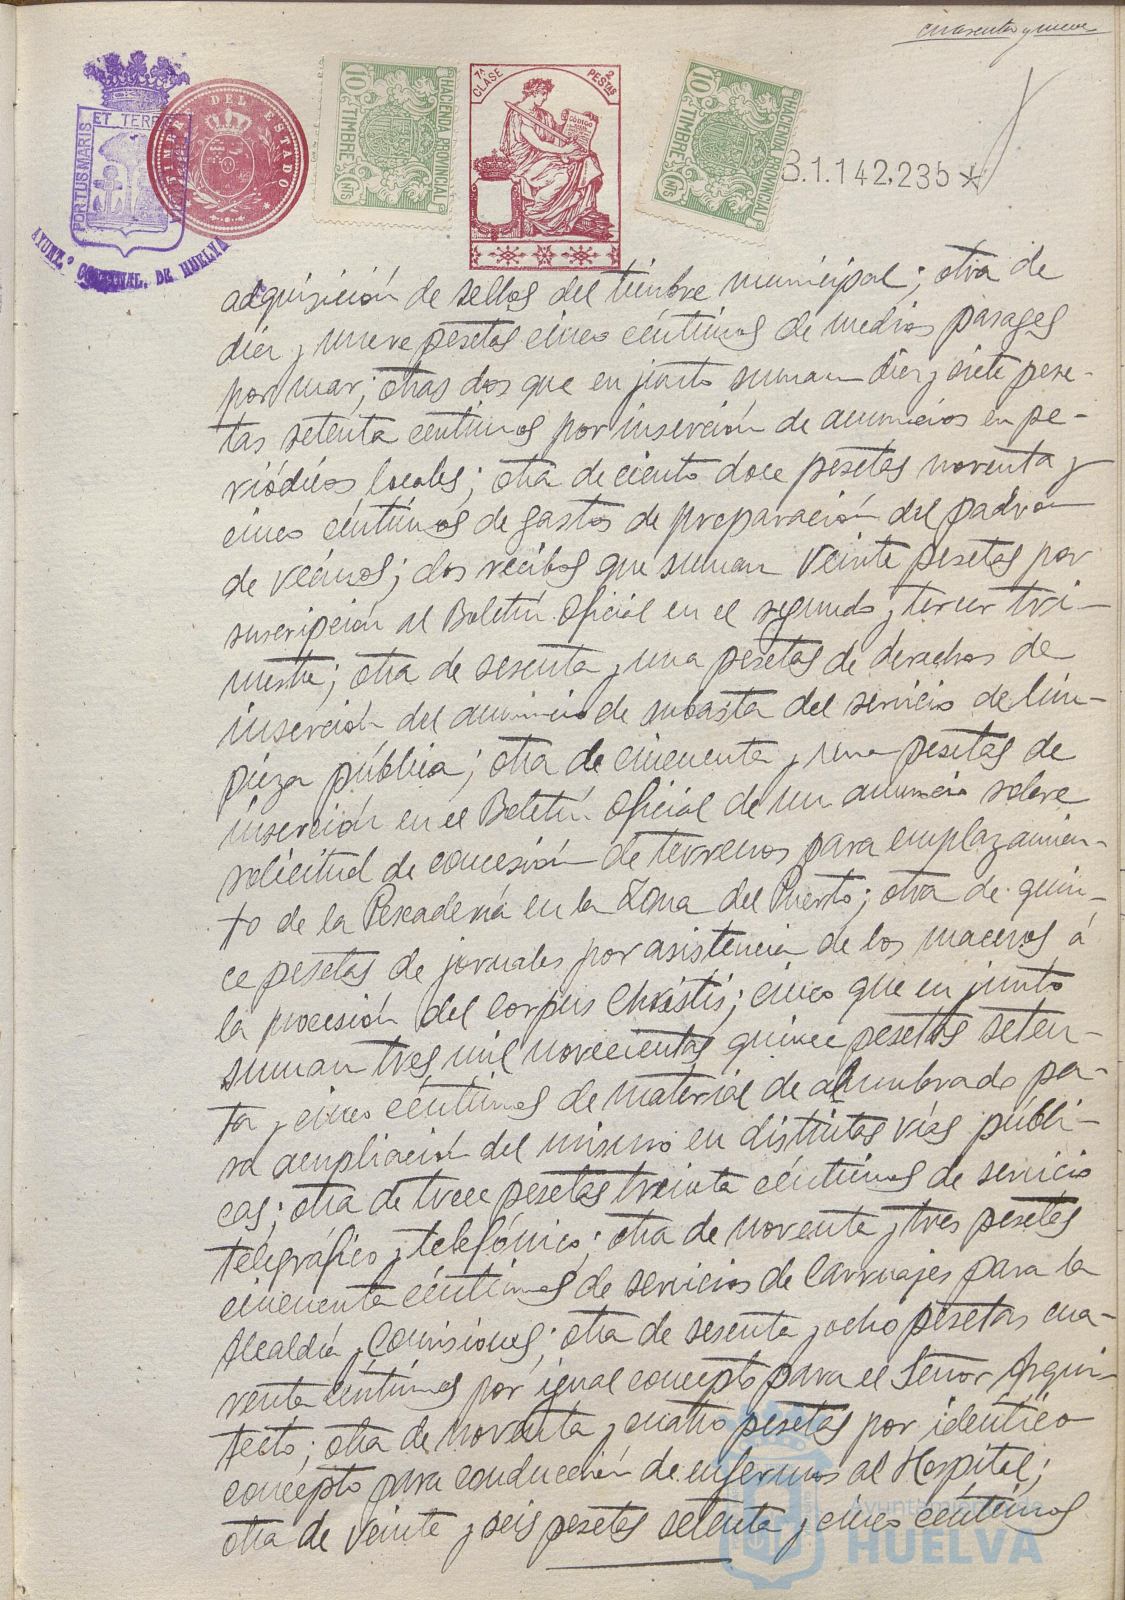 cuarenta y nueve
PORTUS MARIS ET TERRE
AYUNT.º CONSTNAL. DE HUELVA
TIMBRE DEL ESTADO
HACIENDA PROVINCIAL
TIMBRE
10 CTS
7ª CLASE 2 PESTAS
CODIGO
HACIENDA PROVINCIAL
TIMBRE
10 CTS
B.1.142.235 *
adquisición de sellos del timbre municipal; otra de
diez y nueve pesetas cinco céntimos de medios pasages
por mar; otras dos que en junto suman diez y siete pese-
tas setenta céntimos por inserción de anuncios en pe-
riódicos locales; otra de ciento doce pesetas noventa y
cinco céntimos de gastos de preparación del padrón
de vecinos; dos recibos que suman veinte pesetas por
suscripción al Boletín Oficial en el segundo y tercer tri-
mestre; otra de sesenta y una pesetas de derechos de
inserción del anuncio de subasta del servicio de lim-
pieza pública; otra de cincuenta y una pesetas de
inserción en el Boletín Oficial de un anuncio sobre
solicitud de concesión de terrenos para emplazamien-
to de la Pescadería en la Zona del Puerto; otra de quin-
ce pesetas de jornales por asistencia de los maceros á
la procesión del Corpus Christis; cinco que en junto
suman tres mil novecientas quince pesetas seten-
ta y cinco céntimos de material de alumbrado pa-
ra ampliación del mismo en distintas vías públi-
cas; otra de trece pesetas treinta céntimos de servicio
telegráfico y telefónico; otra de noventa y tres pesetas
cincuenta céntimos de servicios de carruajes para la
Alcaldía y Comisiones; otra de sesenta y ocho pesetas cua-
renta céntimos por igual concepto para el Señor Arqui-
tecto; otra de noventa y cuatro pesetas por idéntico
concepto para conducción de enfermos al Hospital;
otra de veinte y seis pesetas setenta y cinco céntimos
Ayuntamiento de
HUELVA